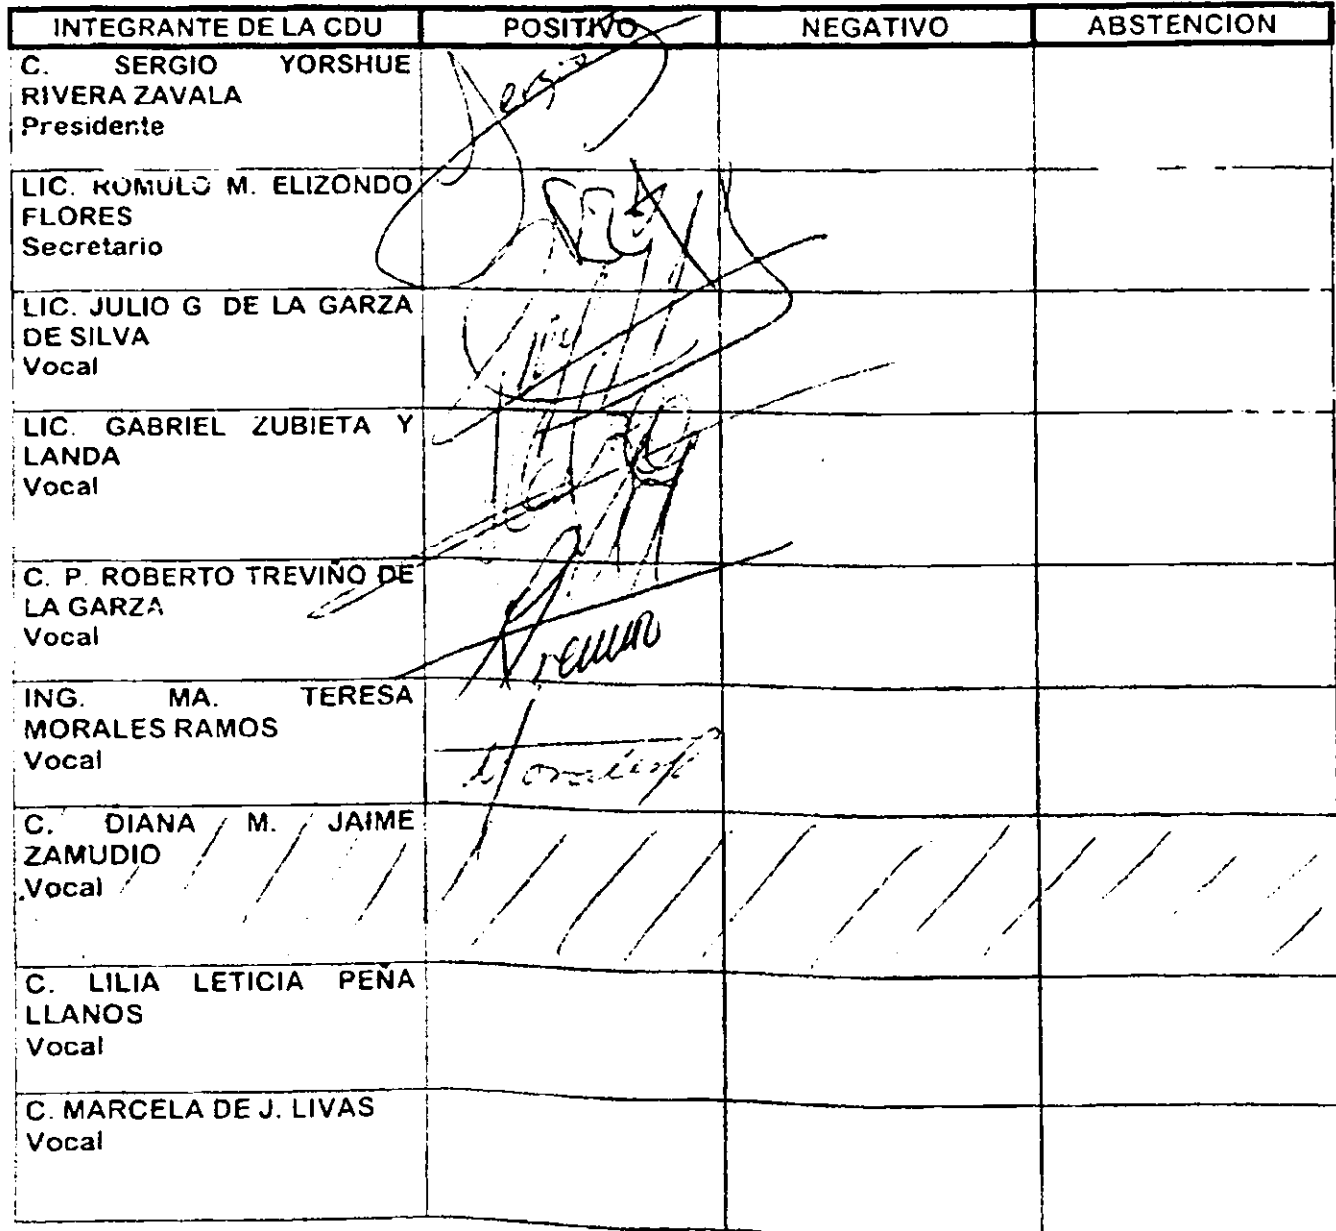 INTEGRANTE DE LA CDU POSITIVO NEGATIVO ABSTENCION
C. SERGIO YORSHUE
RIVERA ZAVALA
Presidente
LIC. ROMULO M. ELIZONDO
FLORES
Secretario
LIC. JULIO G DE LA GARZA
DE SILVA
Vocal
LIC. GABRIEL ZUBIETA Y
LANDA
Vocal
C. P. ROBERTO TREVIÑO DE
LA GARZA
Vocal
ING. MA. TERESA
MORALES RAMOS
Vocal
C. DIANA M. JAIME
ZAMUDIO
Vocal
C. LILIA LETICIA PEÑA
LLANOS
Vocal
C. MARCELA DE J. LIVAS
Vocal